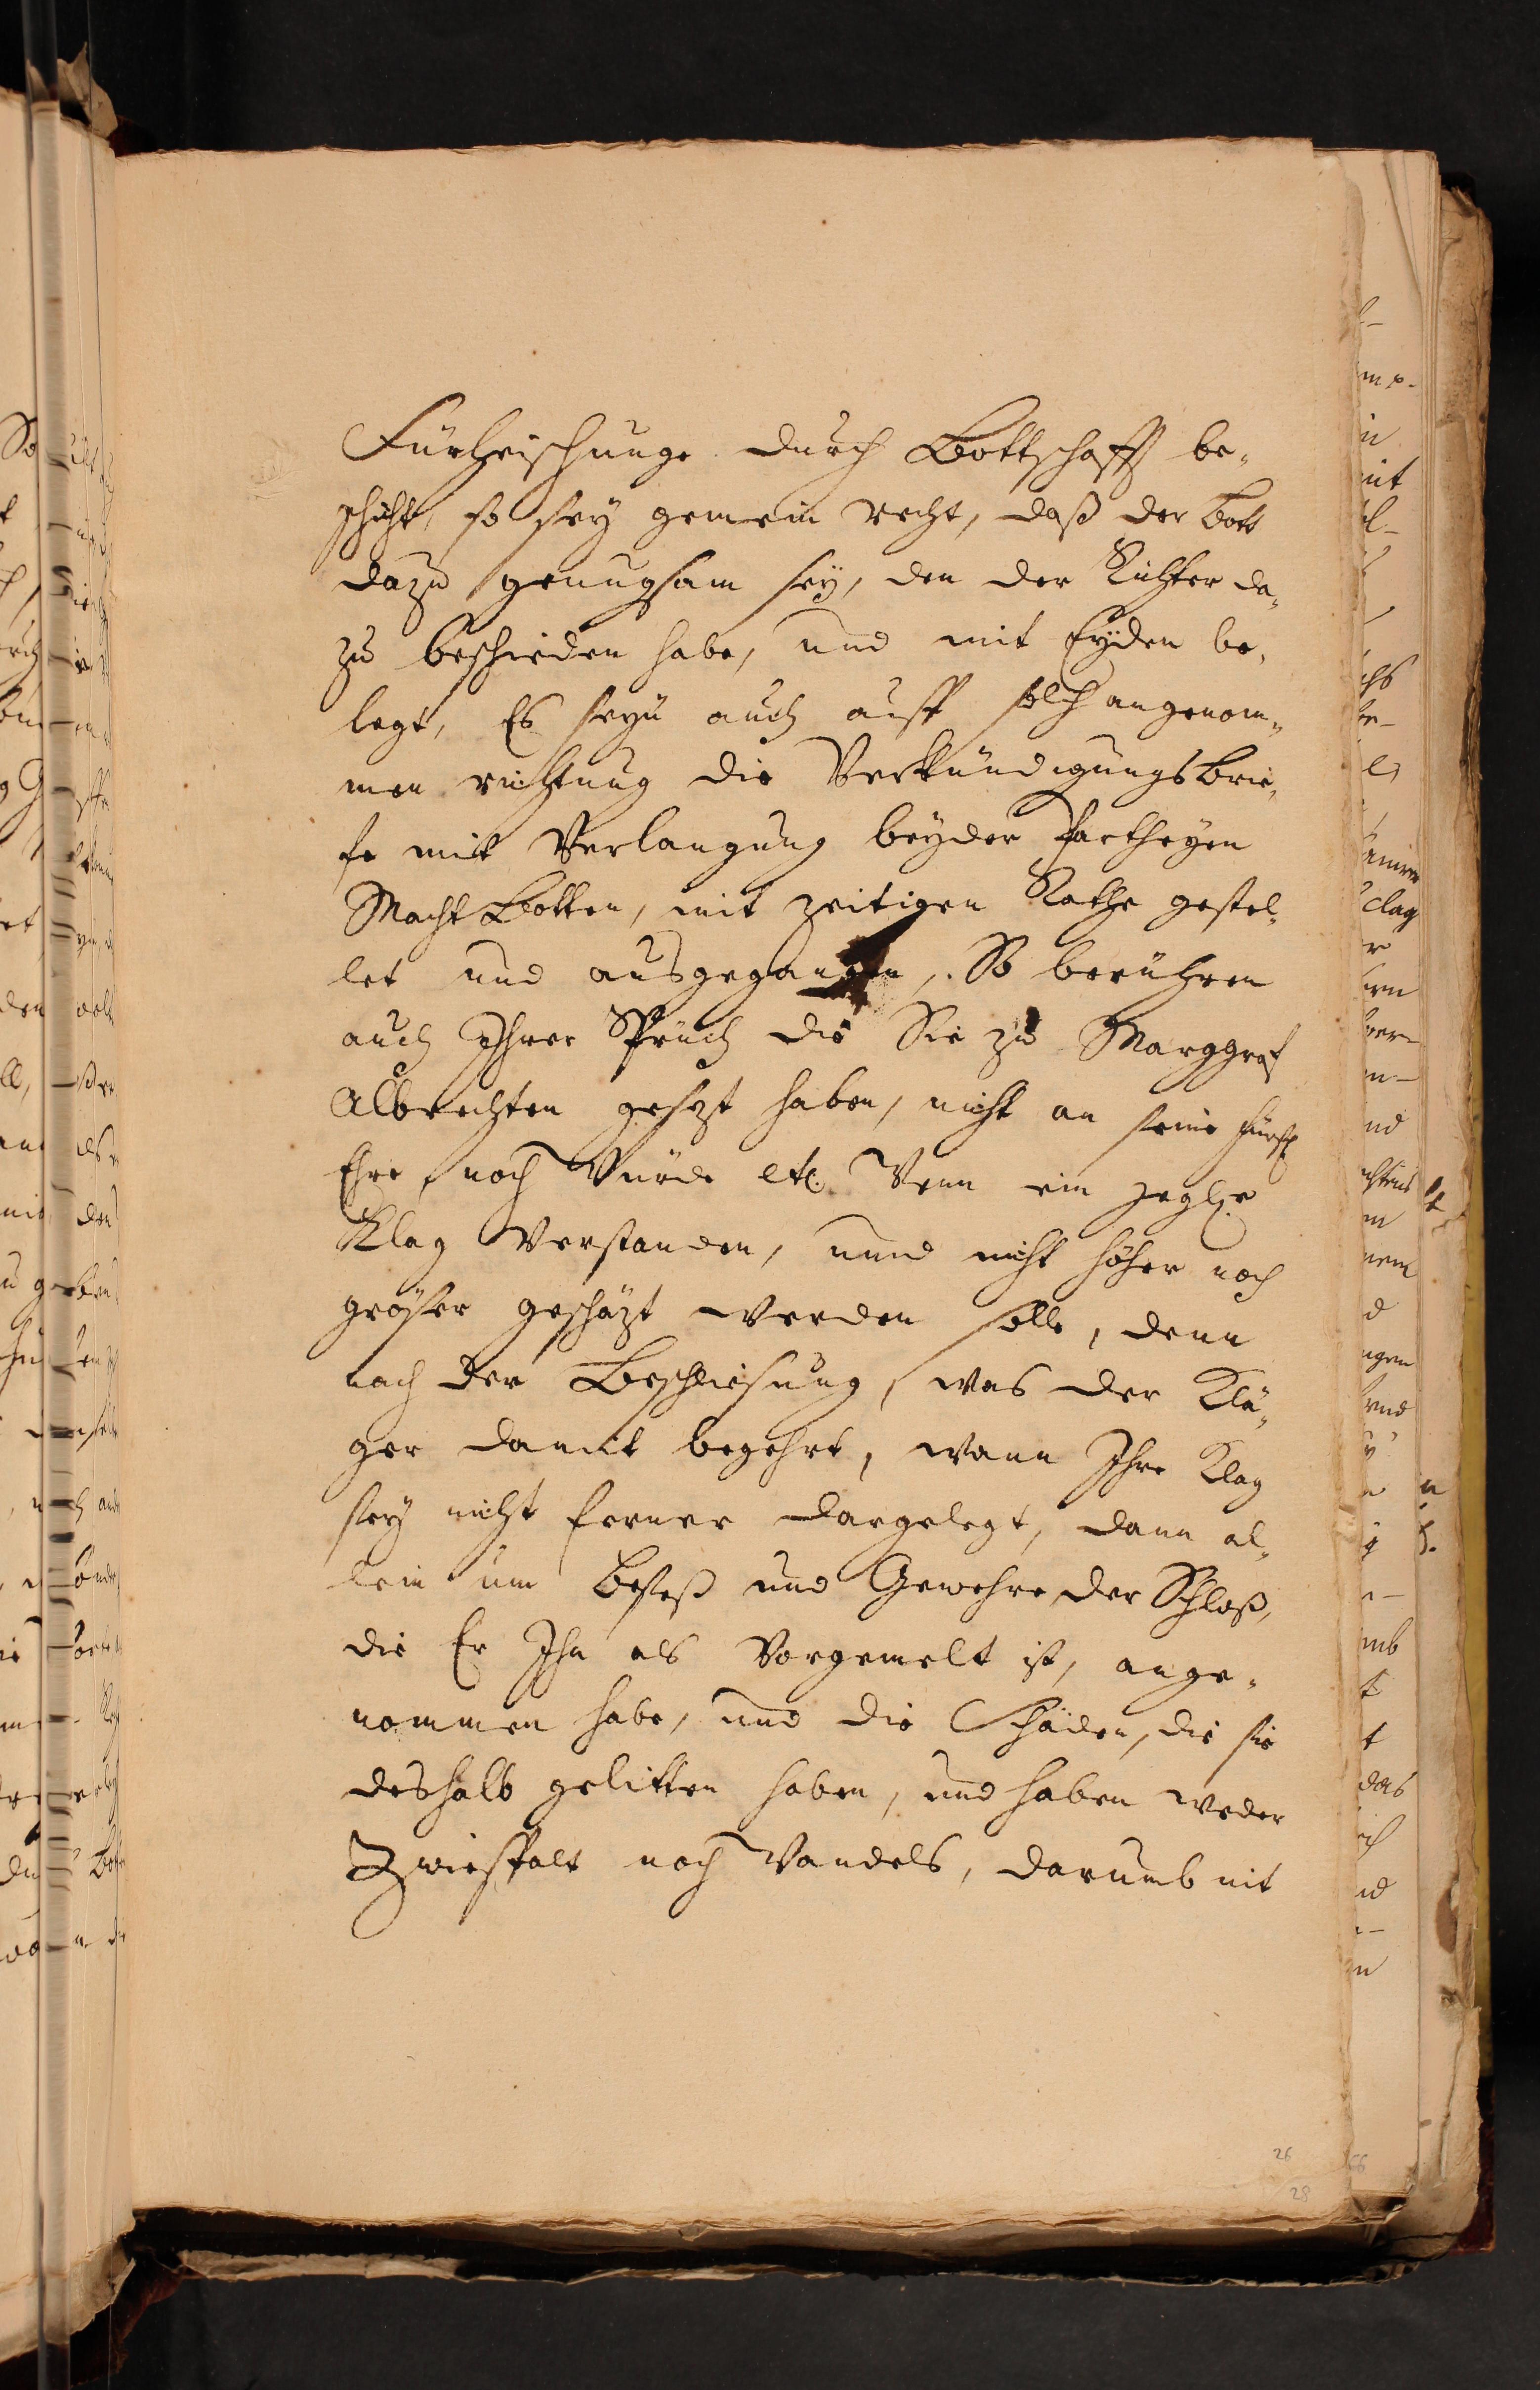 Fürheischunge durch Bottschafft be-
schicht, so sey gemein recht, daß der Bott
dazu genugsam seÿ, den der Richter da-
zu beschieden habe, und mit Eyden be-
legt, Es seyn auch auff solch angenom-
men richtung die VerkündigungsBrie-
fe mit Verlangung beyder Partheyen
MachtBotten, mit zeitigen Rathe gestel-
let und ausgegangen, So berühren
auch Ihrer Sprüch die Sie zu Marggraf
Albrechten gesezt haben, nicht an seine fürstl
Ehre, noch Würde etc. Wenn ein jeglich
Klag Verstanden, unnd nicht höher noch
gröser geschäzt werden solle, denn
nach der Beschliesung, was der Klä-
ger damit begehrt, wann Ihre Klag
sey nicht ferner dargelegt, dann al-
lein um Beseß und Gewehre der Schloß,
die Er Ihn als Vorgemelt ist, ange-
nommen habe, und die Schäden, die sie
deshalb gelitten haben, und haben weder
Zwiespalt noch Wandels, darumb nit
26
28